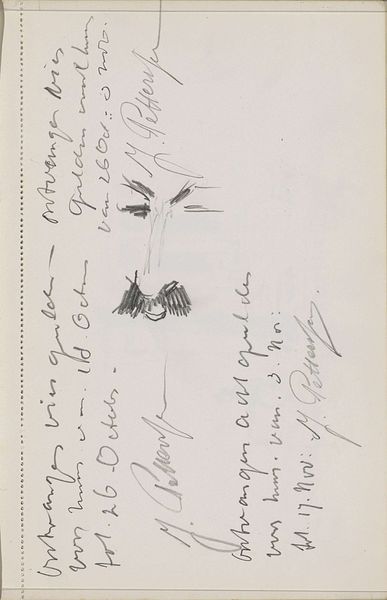 Ontvangen vier gulden
voor huur van 12 Octo
tot 26 October
J. Pettersen
Ontvangen vier
gulden voor huur
van 26 Oct: 3 nov.
J. Pettersen
Ontvangen acht gulden
voor huur van 3 Nov:
tot 17 Nov: J. Pettersen.